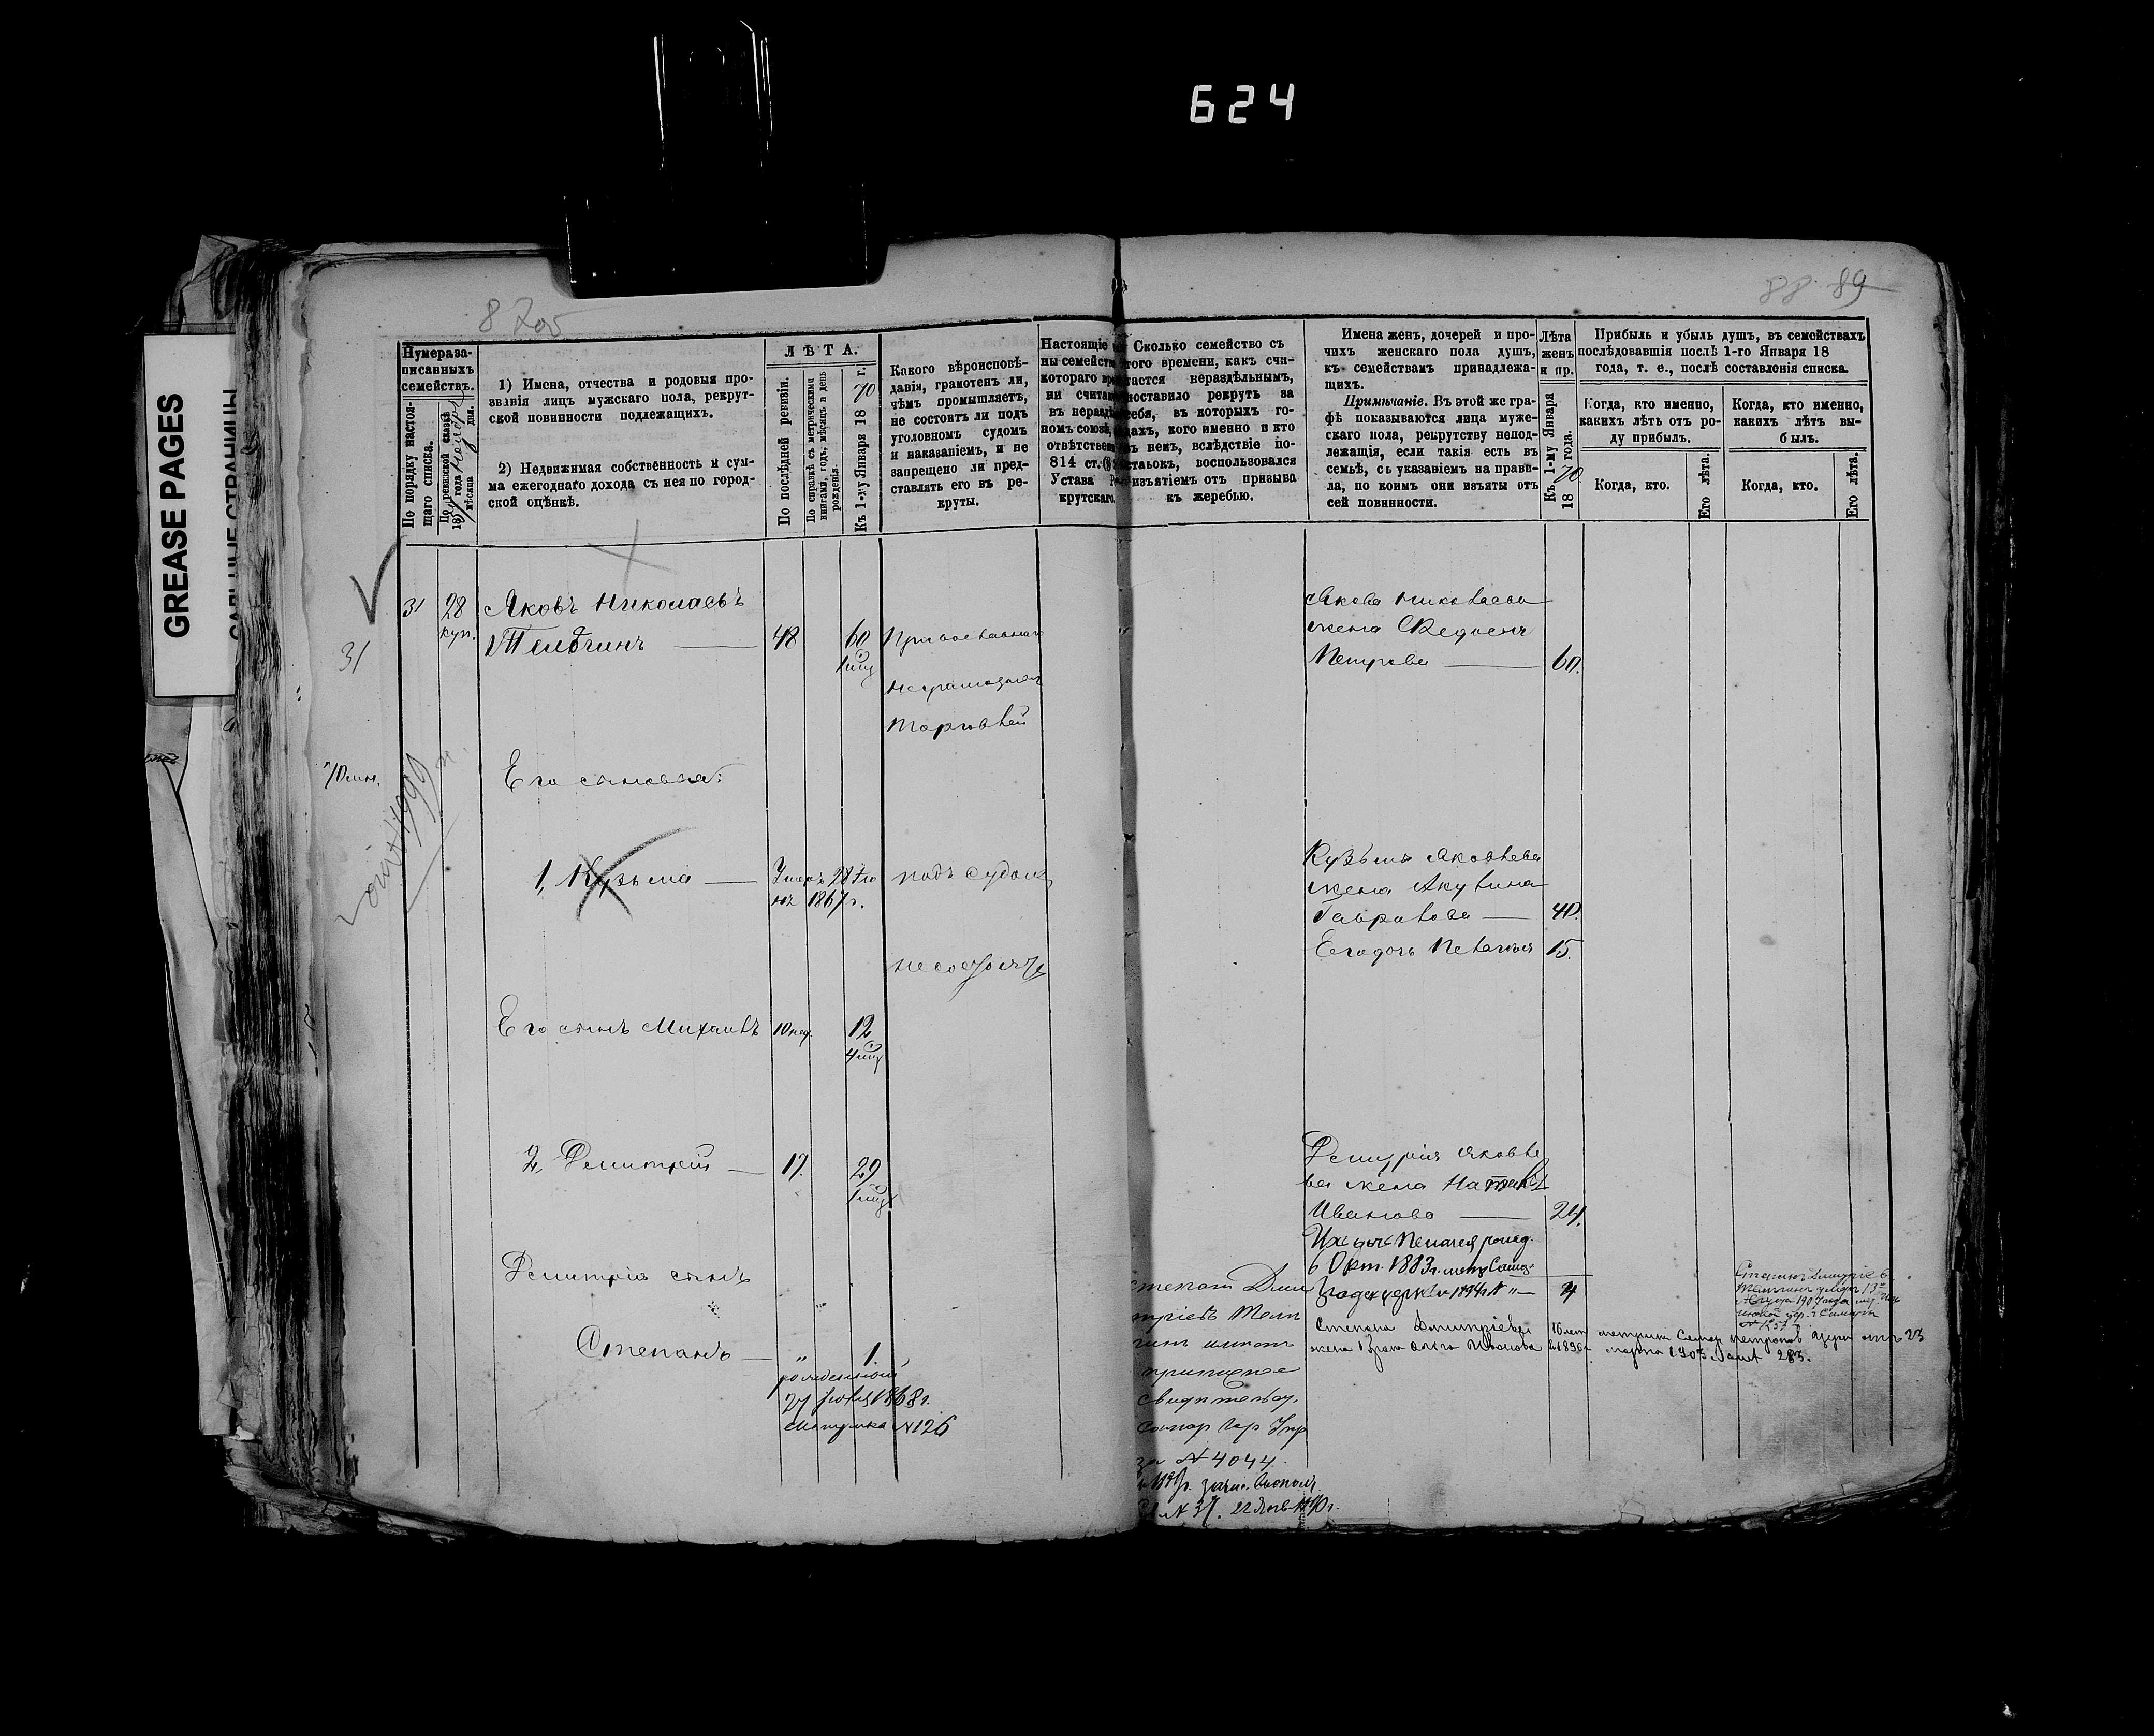 624
GREASE PAGES
САЛЬНЫЕ СТРАНИЦЫ
88 89
Нумера за-
писанныхъ
семействъ.
По порядку настоя-
щаго списка.
По ревизской сказкѣ
18 года
мѣсяца дня.
1) Имена, отчества и родовыя про-
званія лицъ мужскаго пола, рекрут-
ской повинности подлежащихъ.
2) Недвижимая собственность и сум-
ма ежегоднаго дохода съ нея по город-
ской оцѣнкѣ.
ЛѢТА.
По послѣдней ревизіи.
По справкѣ съ метрическими
книгами, годъ, мѣсяцъ и день
рожденія.
Къ 1-му Января 1870 г.
Какого вѣроисповѣ-
данія, грамотенъ ли,
чѣмъ промышляетъ,
не состоитъ ли подъ
уголовнымъ судомъ
и наказаніемъ, и не
запрещено ли пред-
ставлять его въ ре-
круты.
Настоящіе
ны семейств
котораго вре
ни счита
въ неразд
номъ союзѣ,
отвѣтствен
814 ст.
Устава Р
крутскаго.
Сколько семейство съ
того времени, какъ счи-
тается нераздѣльнымъ,
поставило рекрутъ за
себя, въ которыхъ го-
дахъ, кого именно и кто
въ немъ, вслѣдствіе по-
изъятіемъ отъ призыва
къ жеребью.
Имена женъ, дочерей и про-
чихъ женскаго пола душъ,
къ семействамъ принадлежа-
щихъ.
Примѣчаніе. Въ этой же гра-
фѣ показываются лица муже-
скаго пола, рекрутству непод-
лежащія, если такія есть въ
семьѣ, съ указаніемъ на прави-
ла, по коимъ они изъяты отъ
сей повинности.
Лѣта
женъ
и пр.
Къ 1-му Января
1870 года.
Прибыль и убыль душъ, въ семействахъ
послѣдовавшія послѣ 1-го Января 18
года, т. е., послѣ составленія списка.
Когда, кто именно,
какихъ лѣтъ отъ ро-
ду прибылъ.
Когда, кто именно,
какихъ лѣтъ вы-
былъ.
Когда, кто.
Его лѣта.
Когда, кто.
Его лѣта.
31
31 28 Яковъ Николаевъ
куп. Телѣгинъ 48 60
Православнаго
Неграмотенъ
Торговлей
Якова Николаева
жена Федосья
Петрова 60.
Его сыновья:
1, Кузьма Умеръ 28 Ію
ня 1867 г.
подъ судомъ
не состоитъ
Кузьмы Яковлева
жена Акулина
Гаврилова 40.
Его дочь Пелагея 15.
Его сынъ Михаилъ 10 нед. 12
2, Дмитрій 17. 29
Дмитрія Яковле
ва жена Наталья
Иванова 24.
Ихъ дочь Пелагея рожд.
6 Окт. 1883 г.
Дмитрія сынъ
Степанъ „ 1.
рожденный
27 Іюля 1868 г.
Метрика №126
Степанъ Дми
тріевъ Телѣ
гинъ имѣетъ
приписное
свидѣтельст.
Самар Гор Упр
за №4044.
№37. 22 Янв 1890 г.
Степана Дмитріева
жена 1 брака Ольга Иванова
Степанъ Дмитріевъ
Телѣгинъ умеръ 13
Августа 1907 года
марта 1903 г. за № 283.